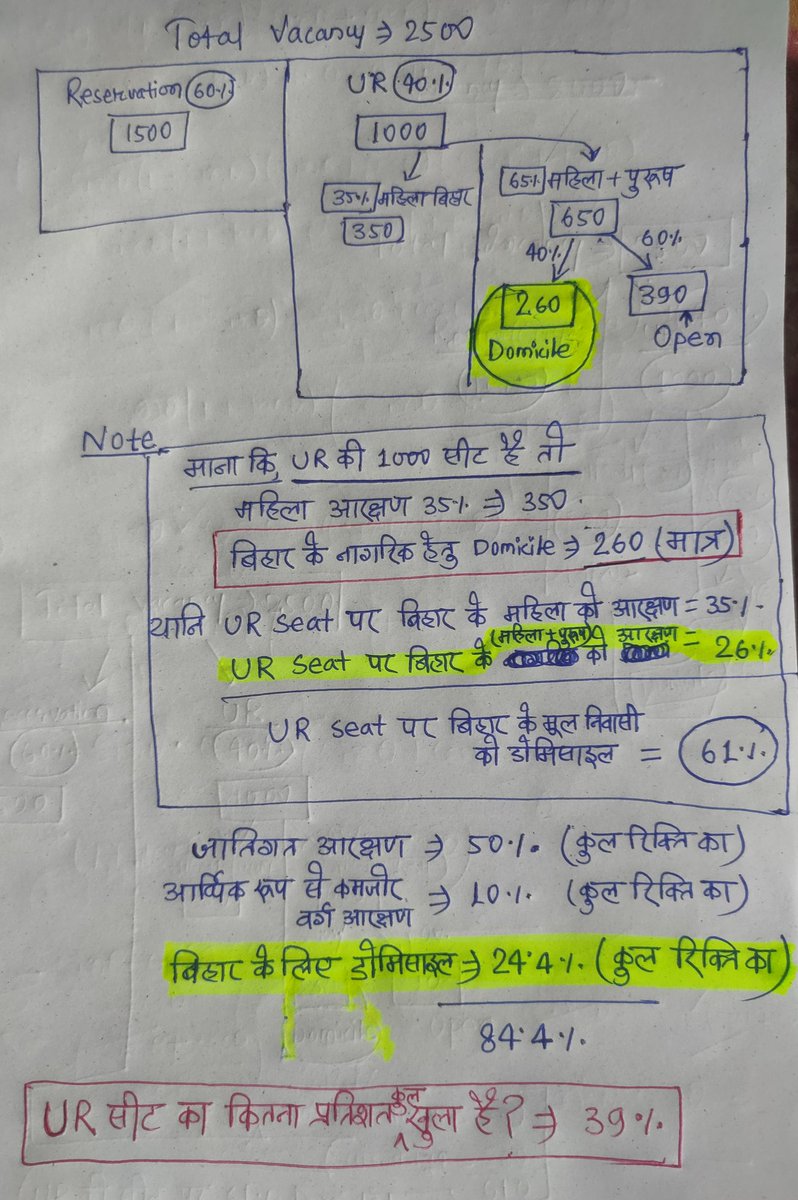 Total Vacancy ⇒ 2500
Reservation 60%
1500
UR 40%
1000
35% महिला बिहार
350
65% महिला + पुरूष
650
40%
60%
260
Domicile
390
Open
Note
माना कि, UR की 1000 सीट है तो
महिला आरक्षण 35% ⇒ 350.
बिहार के नागरिक हेतु Domicile ⇒ 260 (मात्र)
यानि UR Seat पर बिहार के महिला को आरक्षण = 35%.
UR Seat पर बिहार के (महिला+पुरूष) को आरक्षण = 26%.
UR Seat पर बिहार के मूल निवासी
की डोमिसाइल = 61%
जातिगत आरक्षण ⇒ 50%. (कुल रिक्ति का)
आर्थिक रूप से कमजोर
वर्ग आरक्षण ⇒ 10%. (कुल रिक्ति का)
बिहार के लिए डोमिसाइल ⇒ 24.4%. (कुल रिक्ति का)
84.4%
UR सीट का कितना प्रतिशत कुल खुला है? ⇒ 39%